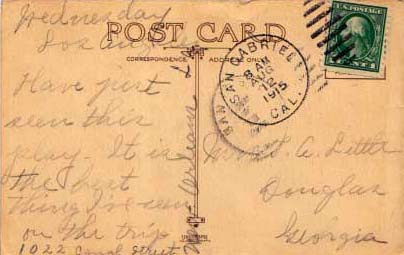 Wednesday
Los Ang
POST CARD
CORRESPONDENCE
ADDRESS ONLY
Have just
seen this
play. It is
the best
thing I've seen
on the trip
1022 Canal Street
New Orleans La
SAN GABRIEL
8 AM
AUG
12
1915
CAL.
U.S. POSTAGE
1 CENT 1
A. Little
Douglas
Georgia